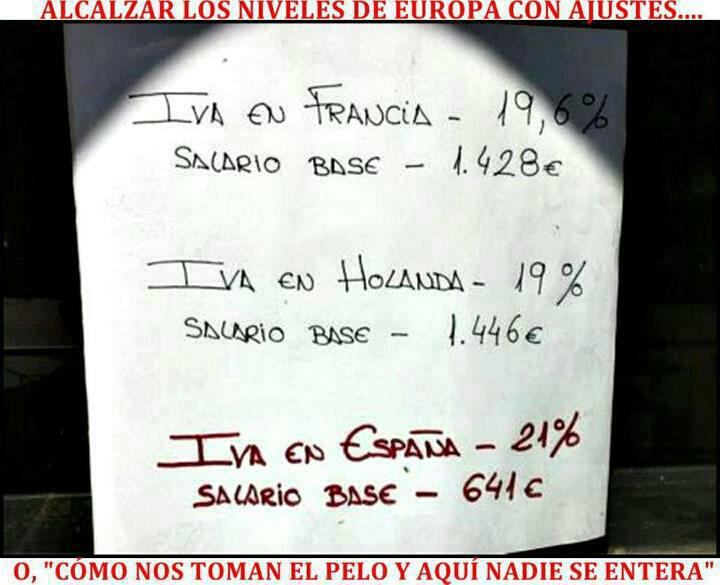 ALCALZAR LOS NIVELES DE EUROPA CON AJUSTES....
IVA EN FRANCIA - 19,6%
SALARIO BASE - 1.428€
IVA EN HOLANDA - 19%
SALARIO BASE - 1.446€
IVA EN ESPAÑA - 21%
SALARIO BASE - 641€
O, "CÓMO NOS TOMAN EL PELO Y AQUÍ NADIE SE ENTERA"